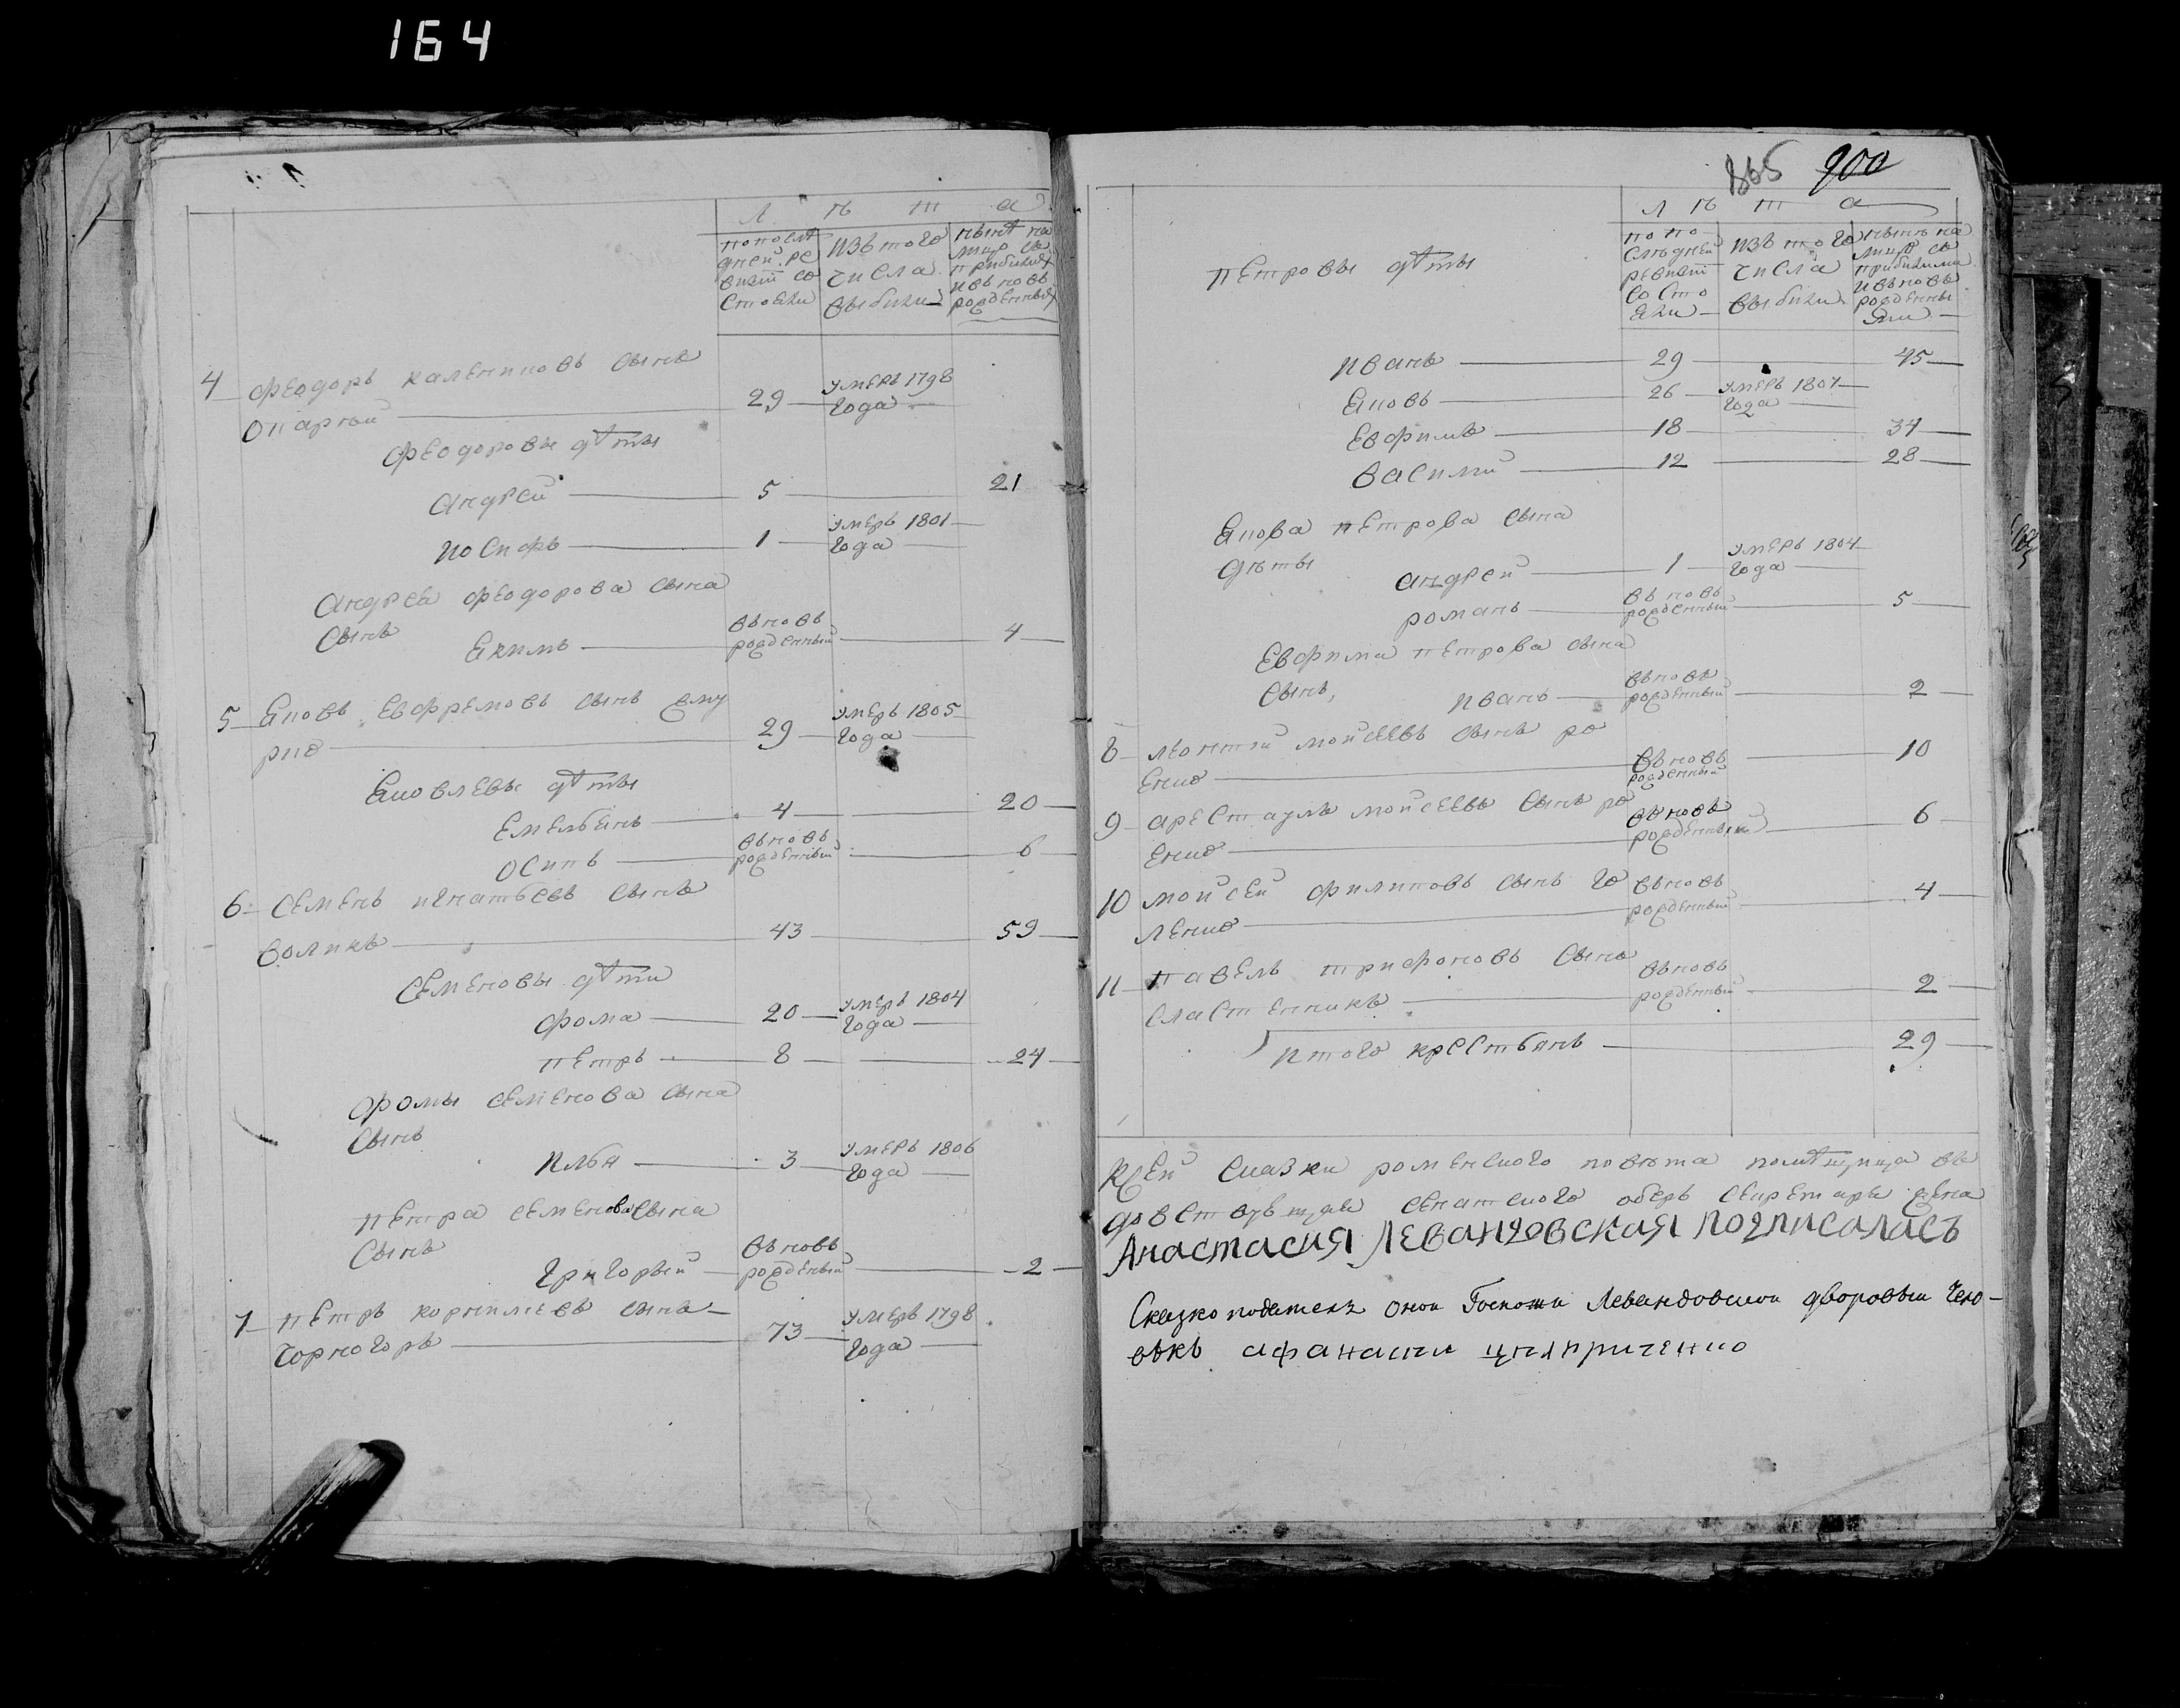 164
Л ѣ т а
по послѣ
дней ре
визіи со
стояли
изъ того
числа
выбыли
нынѣ на
лицо съ
прибылыхъ
и вновь
рожденныхъ
4 Феодоръ калениковъ сынъ
опарный 29 умеръ 1798
года
Феодоровы дѣты
андрей 5 21
иосифъ 1 умеръ 1801
года
андрея феодорова сына
сынъ
якимъ вьновь
рожденный 4
5 яковъ евфремовъ сынъ
29 умеръ 1805
года
яковлевы дѣты
емельянъ 4 20
осипъ вьновь
рожденный 6
6 семенъ игнатьевъ сынъ
воликъ 43 59
семеновы дѣти
фома 20 умеръ 1804
года
петръ 8 24
фомы семенова сына
сынъ
илья 3 умеръ 1806
года
петра семенова сына
сынъ
григорьій вьновь
рожденый 2
7 петръ корнилиевъ сынъ
чорногоръ 73 умеръ 1798
года
865 900
Л ѣ т а
по по
слѣдней
ревизіи
со сто
яли
изъ того
числа
выбыли
нынѣ на
лицо съ
прибылими
и вьновь
рожденны
ями
петровы дѣты
иванъ 29 45
яковъ 26 умеръ 1807
года
евфимъ 18 34
василий 12 28
якова петрова сына
дѣты
андрей 1 умеръ 1804
года
романъ вьновь
рожденный 5
евфима петрова сына
сынъ,
иванъ вьновь
рожденный 2
8 леонтий мойсеевъ сынъ ро
енко вьновь
рожденный 10
9 арестаулъ мойсеевъ сынъ ро
енко вьновь
рожденный 6
10 мойсей филиповъ сынъ го
ленко вьновь
рожденный 4
11 павелъ трифоновъ сынъ
сластенникъ вьновь
рожденный 2
итого крестьянъ 29
к сей сказки роменского повѣта помѣщица въ
довствующая сенатского оберъ секретаря жена
Анастасия Левандовская подписалась
Сказкоподатель оной Госпожи Левандовской дворовый чело-
вѣкъ афанасий